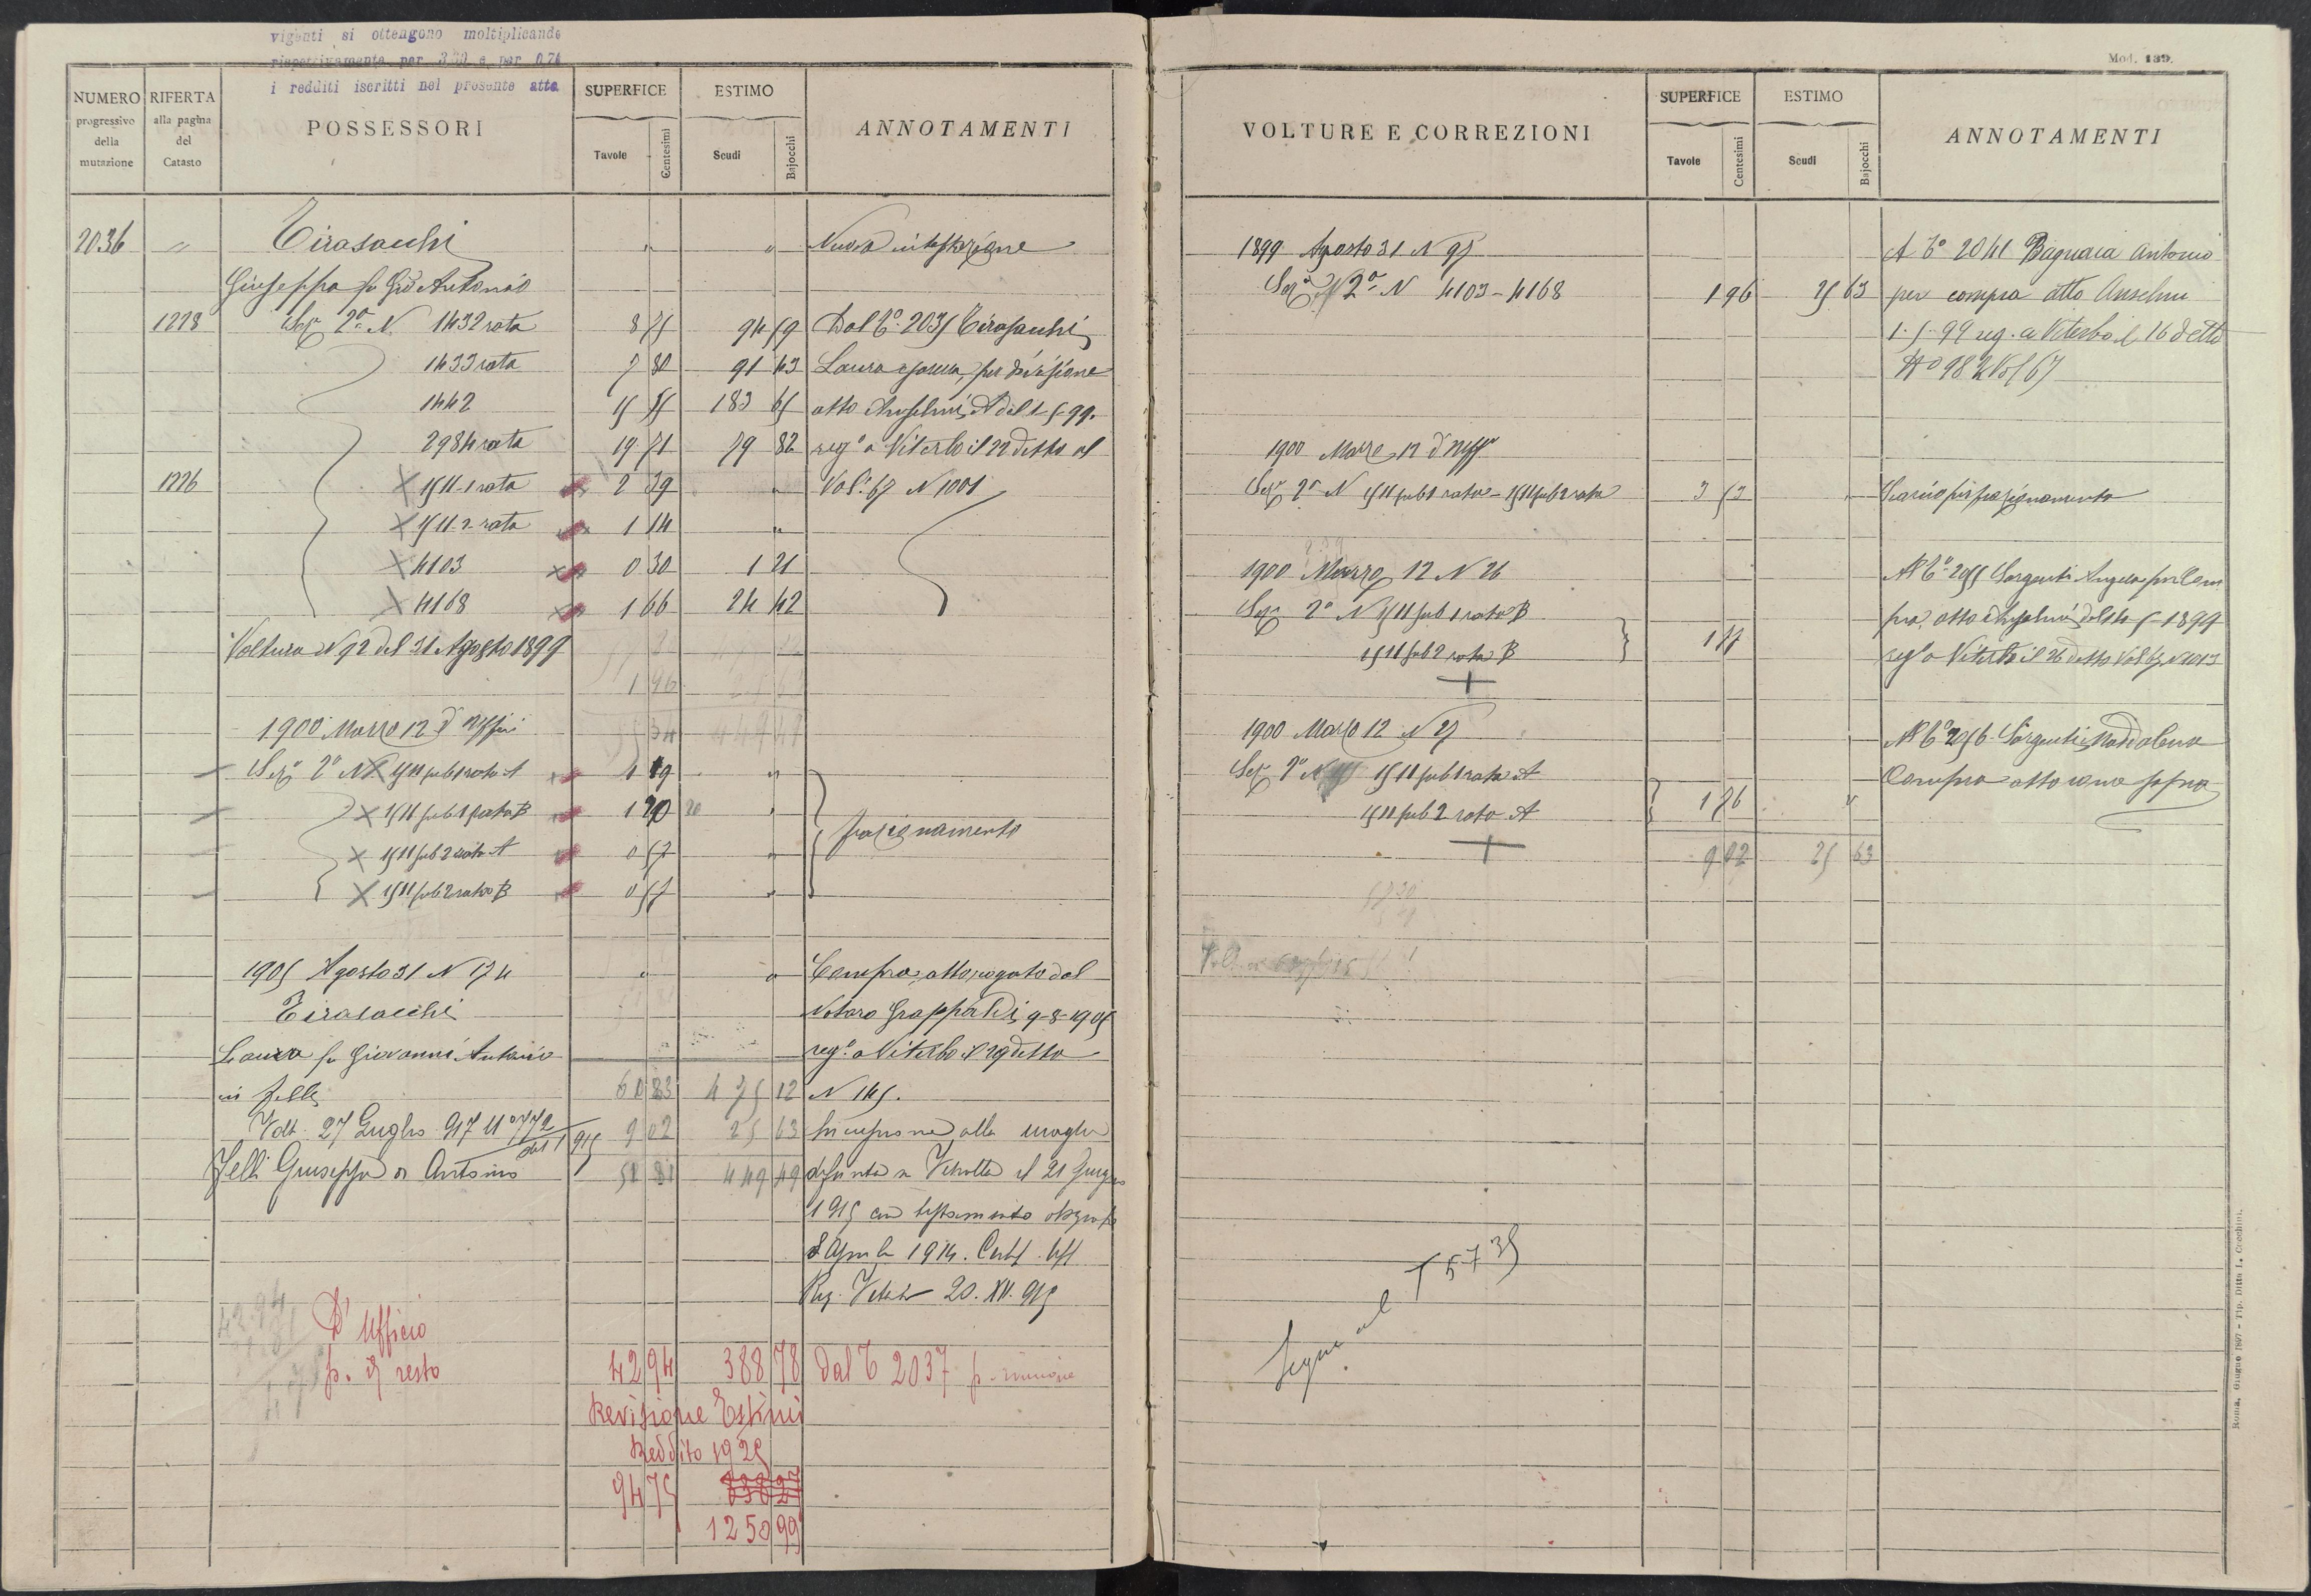 vigenti si ottengono moltiplicando
rispettivamente per 3.60 e per 0.74
i redditi iscritti nel presente atto
NUMERO progressivo della mutazione
RIFERTA alla pagina del Catasto
POSSESSORI
SUPERFICE
Tavole Centesimi
ESTIMO
Scudi Bajocchi
ANNOTAMENTI
2036 " Tirasacchi " " Nuova intestazione
Giuseppa fu Gio Antonio
1228 Sez. 2a N. 1432 rata 8 75 94 59 Dal To 2035 Tirasacchi
1433 rata 7 80 91 43 Laura e sorella, per divisione
1442 15 75 183 65 atto Anselmi del 1-5-99.
2984 rata 19 71 79 82 rego a Viterbo il 22 detto al
1226 1511-1 rata 2 39 " Vol. 67 N 1001
1511-2 rata 1 14 "
4103 0 30 1 21
4168 1 66 24 42
Voltura N 92 del 31 Agosto 1899
1 96
55 34 449 49
1900 Marzo 12 d'uffizi
Sez. 2a N 1511 sub 1 rata A 1 19 "
1511 sub 1 rata B 1 20 "
1511 sub 2 rata A 0 57 "
1511 sub 2 rata B 0 57 "
frazionamento
1905 Agosto 31 N 174 " " Compra, atto rogato dal
Tirasacchi Notaro Grappaldi, 9-8-1905
Laura fu Giovanni Antonio rego. a Viterbo il 29 detto
in Jelli 60 83 475 12 N 145.
Volt. 27 Luglio 917 No 772 9 02 25 63 Successione alla moglie
del 1915
Jelli Giuseppe di Antonio 51 81 449 49 defunta a Vetralla il 21 Giugno
1915 con testamento olografo
8 Aprile 1914. Certf. Uff
Reg. Vetralla 20. XII. 915
42.94
D'Ufficio
p. il resto 42 94 388 78 dal T 2037 p. riunione
Revisione Estimi
Reddito 1925
94 75 838 27
1250 99
Mod. 139.
VOLTURE E CORREZIONI
SUPERFICE
Tavole Centesimi
ESTIMO
Scudi Bajocchi
ANNOTAMENTI
1899 Agosto 31 N 95 A To 2041 Bagnaia Antonio
Sez. 2a N 4103-4168 1 96 25 63 per compra atto Anselmi
1-5-99 reg. a Viterbo il 16 detto
No 982 Vol 67
1900 Marzo 12 d'uffo
Sez. 2a N 1511 sub 1 rata - 1511 sub 2 rata 3 53 " Scarico per frazionamento
1900 Marzo 12 N 26 Al To 2055 Sargenti Angela per Com
Sez. 2a N 1511 sub 1 rata B pra, atto Anselmi del 14-5-1899
1511 sub 2 rata B 1 77 rego a Viterbo il 26 detto Vol 67 N 1013
1900 Marzo 12 N 27 Al To 2056 Sargenti Maddalena
Sez. 2a N 1511 sub 1 rata A Compra atto come sopra
1511 sub 2 rata A 1 76 "
9 02 25 63
Segue al T 5735
Roma, Giugno 1897 - Tip. Ditta L. Cecchini.